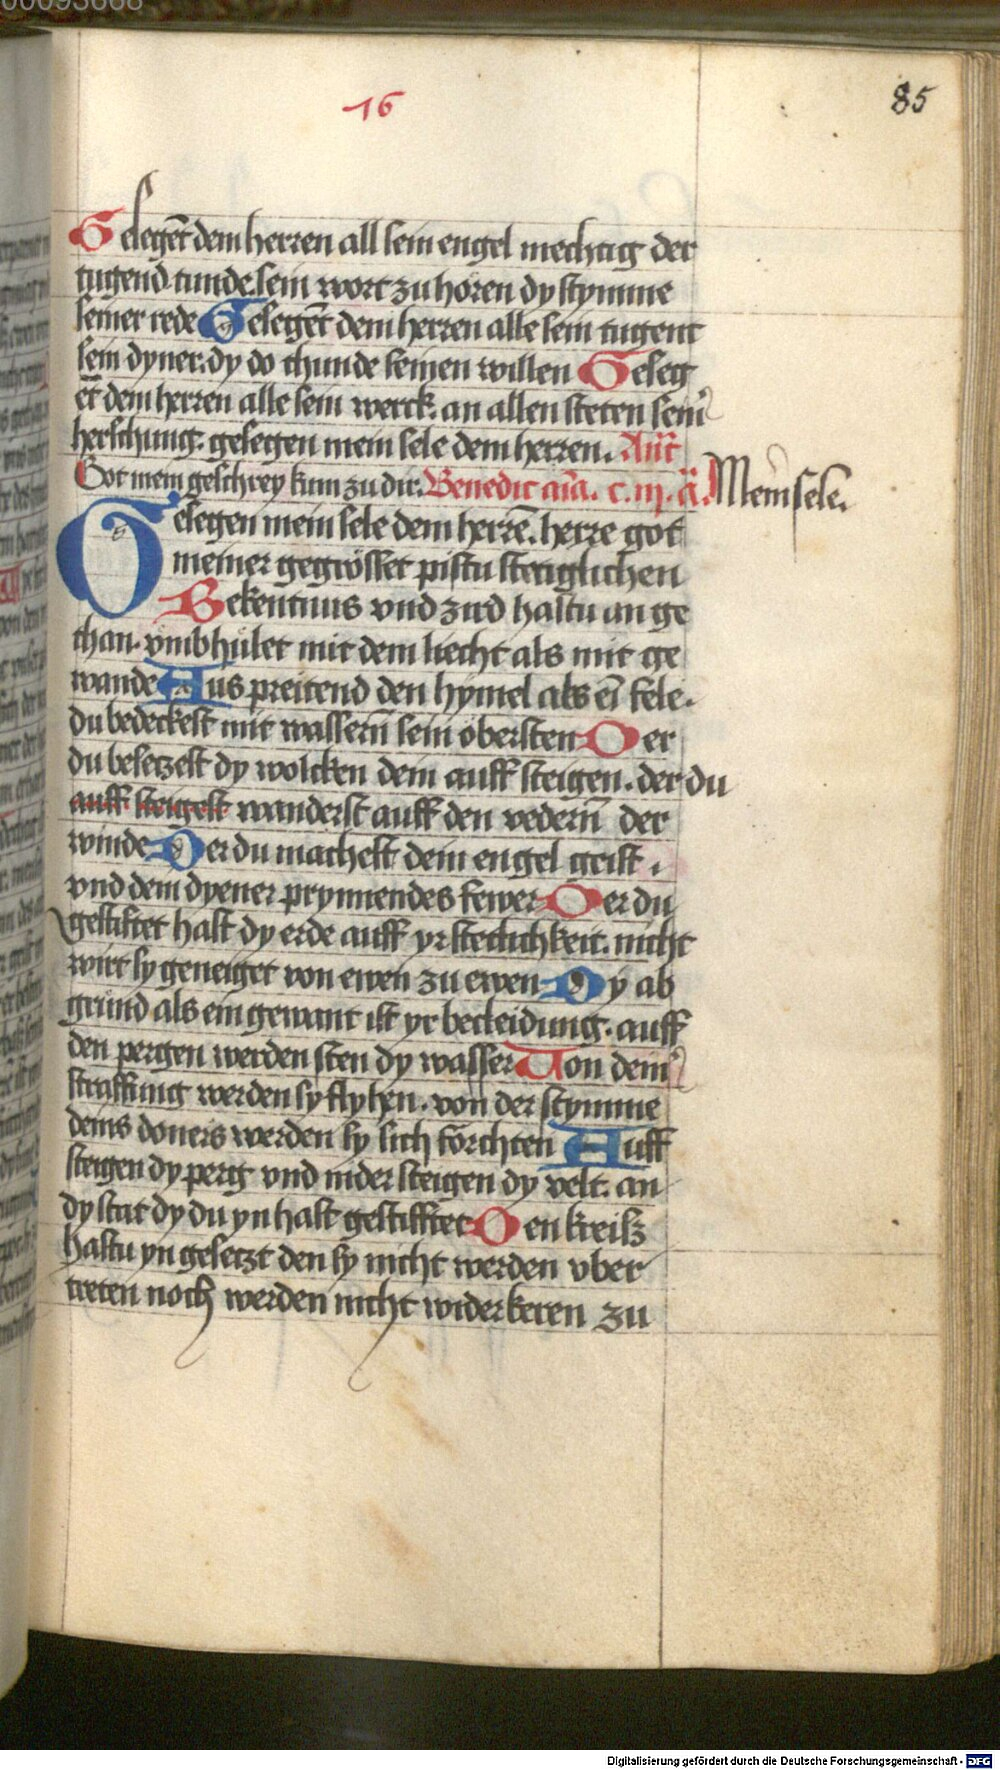 00093668
16
85
Gesegēt dem herren all sein engel mechtig der
tugend tunde sein wort zu hören dy stymme
seiner rede Gesegēt dem herren alle sein tugent
sein dyner. dy do thunde seinen willen Geseg
ēt dem herren alle sein werck. an allen steten sein̾
herschung. gesegen mein sele dem herren. Añt
Got mein geschrey kum zu dir. Benedic aīa. c.iij. ā. Mein sele.
Gesegen mein sele dem herrē. herre got
meiner gegrösset pistu stetiglichen
Bekentnus vnd zird hastu an ge
than. vmbhület mit dem liecht als mit ge
wande Aus preitend den hymel als eī fele.
du bedeckest mit wassern̄ sein öbersten Der
du beseczest dy wolcken dein auff steigen. der du
auff steigest wanderst auff den vedern̄ der
winde Der du machest dein engel geist.
vnd dein dyener prynnendes fewer Der du
gestiftet hast dy erde auff yr stetichkeit. nicht
wirt sy geneiget von ewen zu ewen Dy ab
grund als ein gewant ist yr becleidung. auff
den pergen werden sten dy wasser Von dein̾
straffung werden sy flyhen. von der stymme
deins doners werden sy sich förchten Auff
steigen dy perg vnd nider steigen dy velt. an
dy stat dy du yn hast gestifftet Den kreisz
hastu yn gesetzt den sy nicht werden vber
treten noch werden nicht widerkeren zu
Digitalisierung gefördert durch die Deutsche Forschungsgemeinschaft - DFG